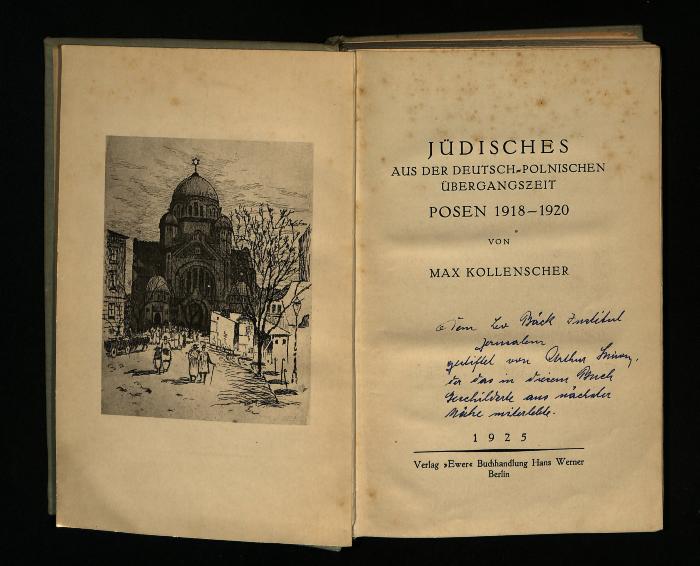 JÜDISCHES
AUS DER DEUTSCH-POLNISCHEN
ÜBERGANGSZEIT
POSEN 1918–1920
VON
MAX KOLLENSCHER
Dem Leo Bäck Institut
Jerusalem
gestiftet von Arthur
der das in diesem Buch
Geschilderte aus nächster
Nähe miterlebte.
1925
Verlag »Ewer« Buchhandlung Hans Werner
Berlin